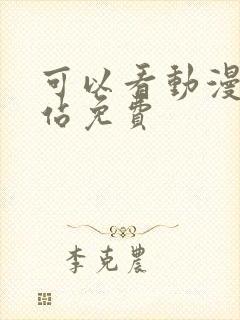 可以看動漫
佔免費
李克農